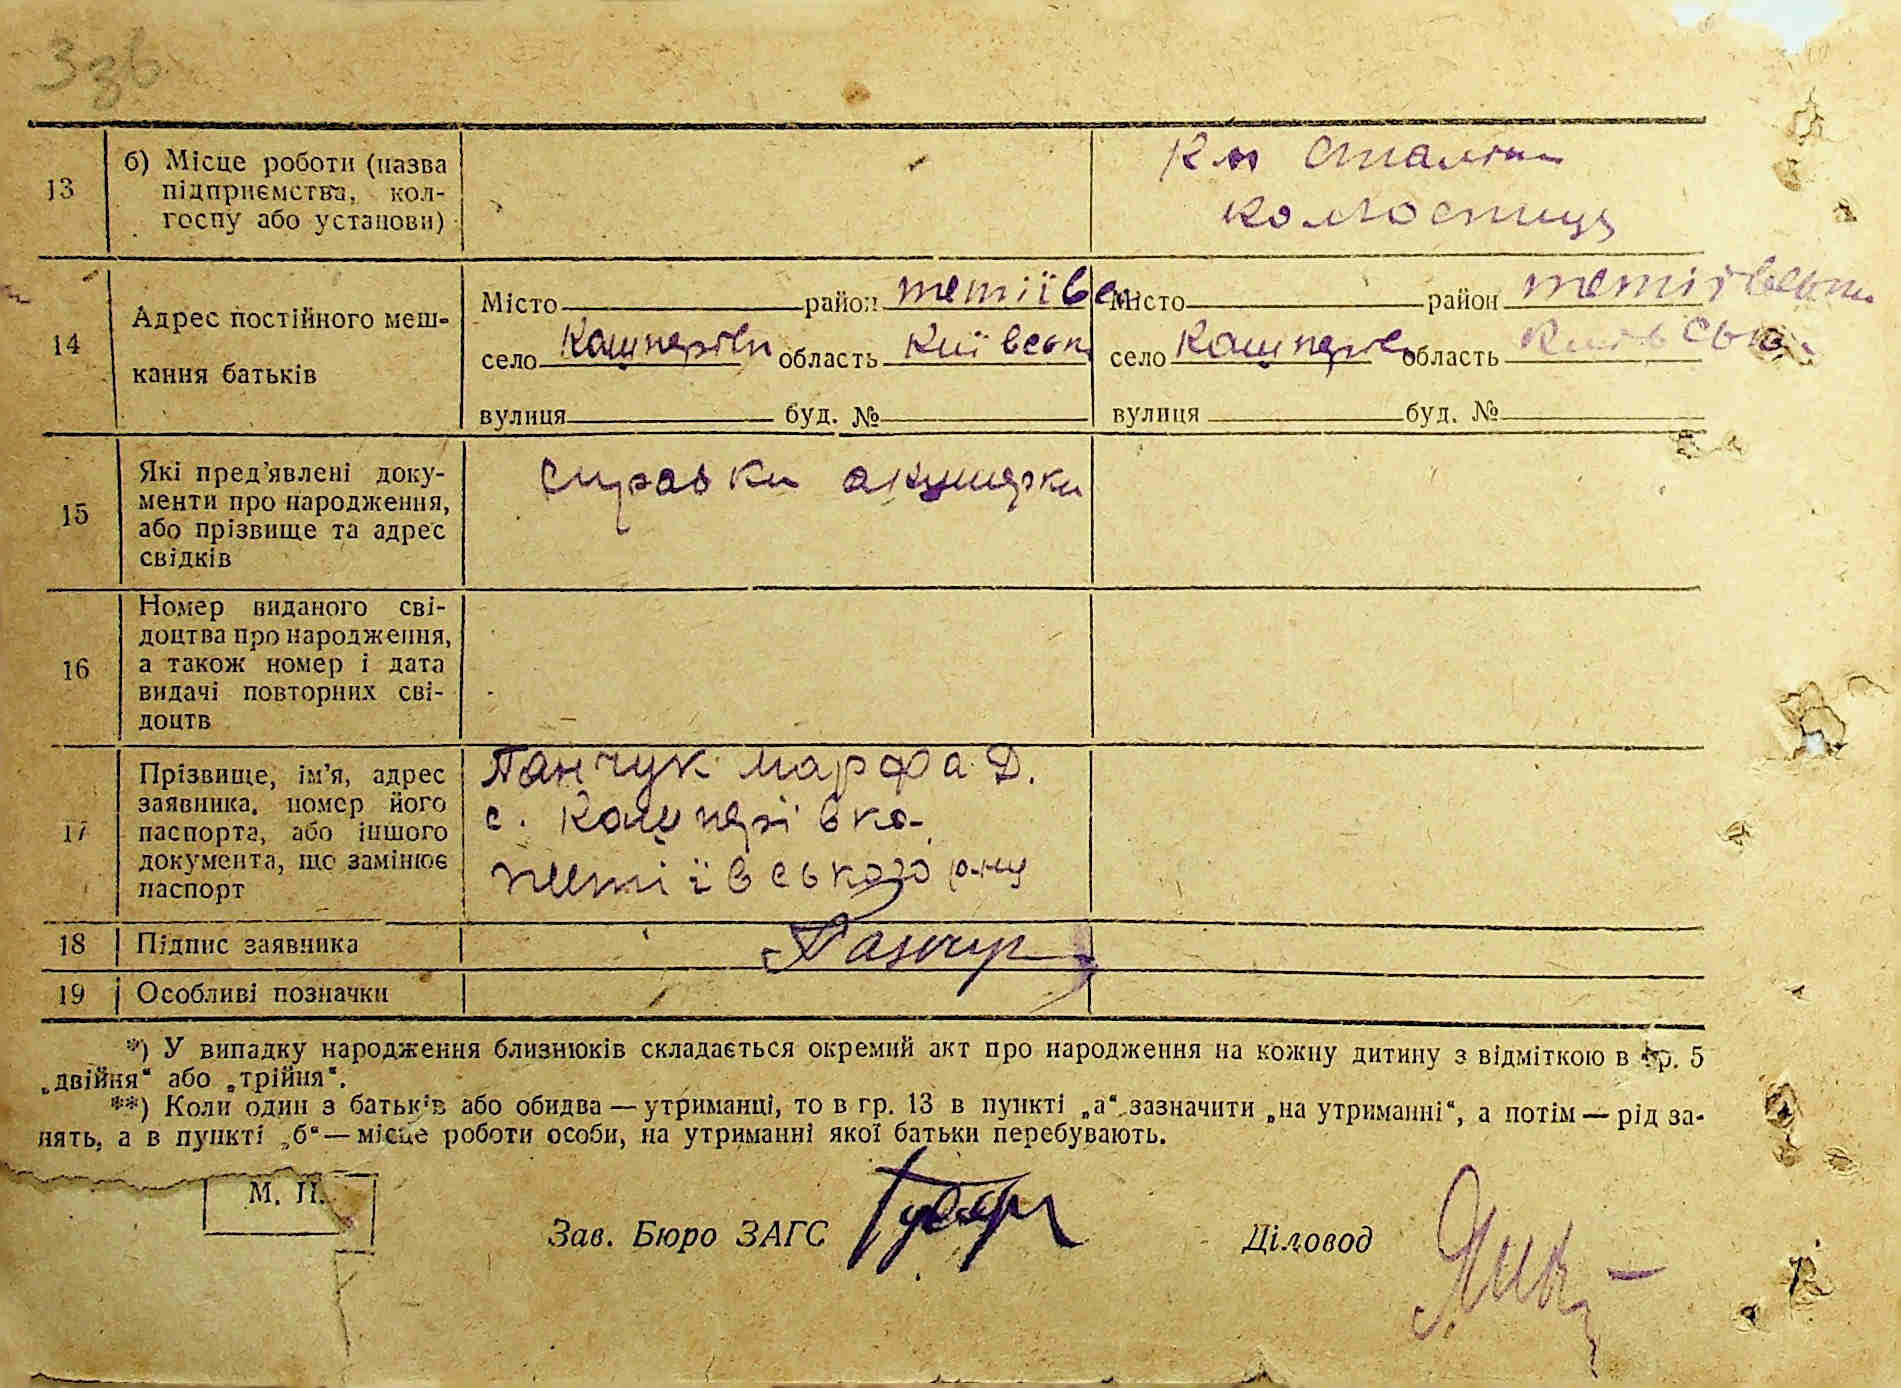 13
б) Місце роботи (назва
підприємства, кол-
госпу або установи)
Сталін
14
Адрес постійного меш-
кання батьків
Місто район Тетіївськ
село Кашперівк область Київськ
вулиця буд. №
Місто район Тетіївськ
село Кашперів область Київськ.
вулиця буд. №
15
Які пред'явлені доку-
менти про народження,
або прізвище та адрес
свідків
справки акушерки
16
Номер виданого сві-
доцтва про народження,
а також номер і дата
видачі повторних сві-
доцтв
17
Прізвище, ім'я, адрес
заявника, номер його
паспорта, або іншого
документа, що замінює
паспорт
Панчук Марфа Д.
с. Кашперівка
Тетіївського р-ну
18
Підпис заявника
Панчук
19
Особливі позначки
*) У випадку народження близнюків складається окремий акт про народження на кожну дитину з відміткою в гр. 5
„двійня“ або „трійня“.
**) Коли один з батьків або обидва — утриманці, то в гр. 13 в пункті „а“ зазначити „на утриманні“, а потім — рід за-
нять, а в пункті „б“ — місце роботи особи, на утриманні якої батьки перебувають.
М. П.
Зав. Бюро ЗАГС
Діловод